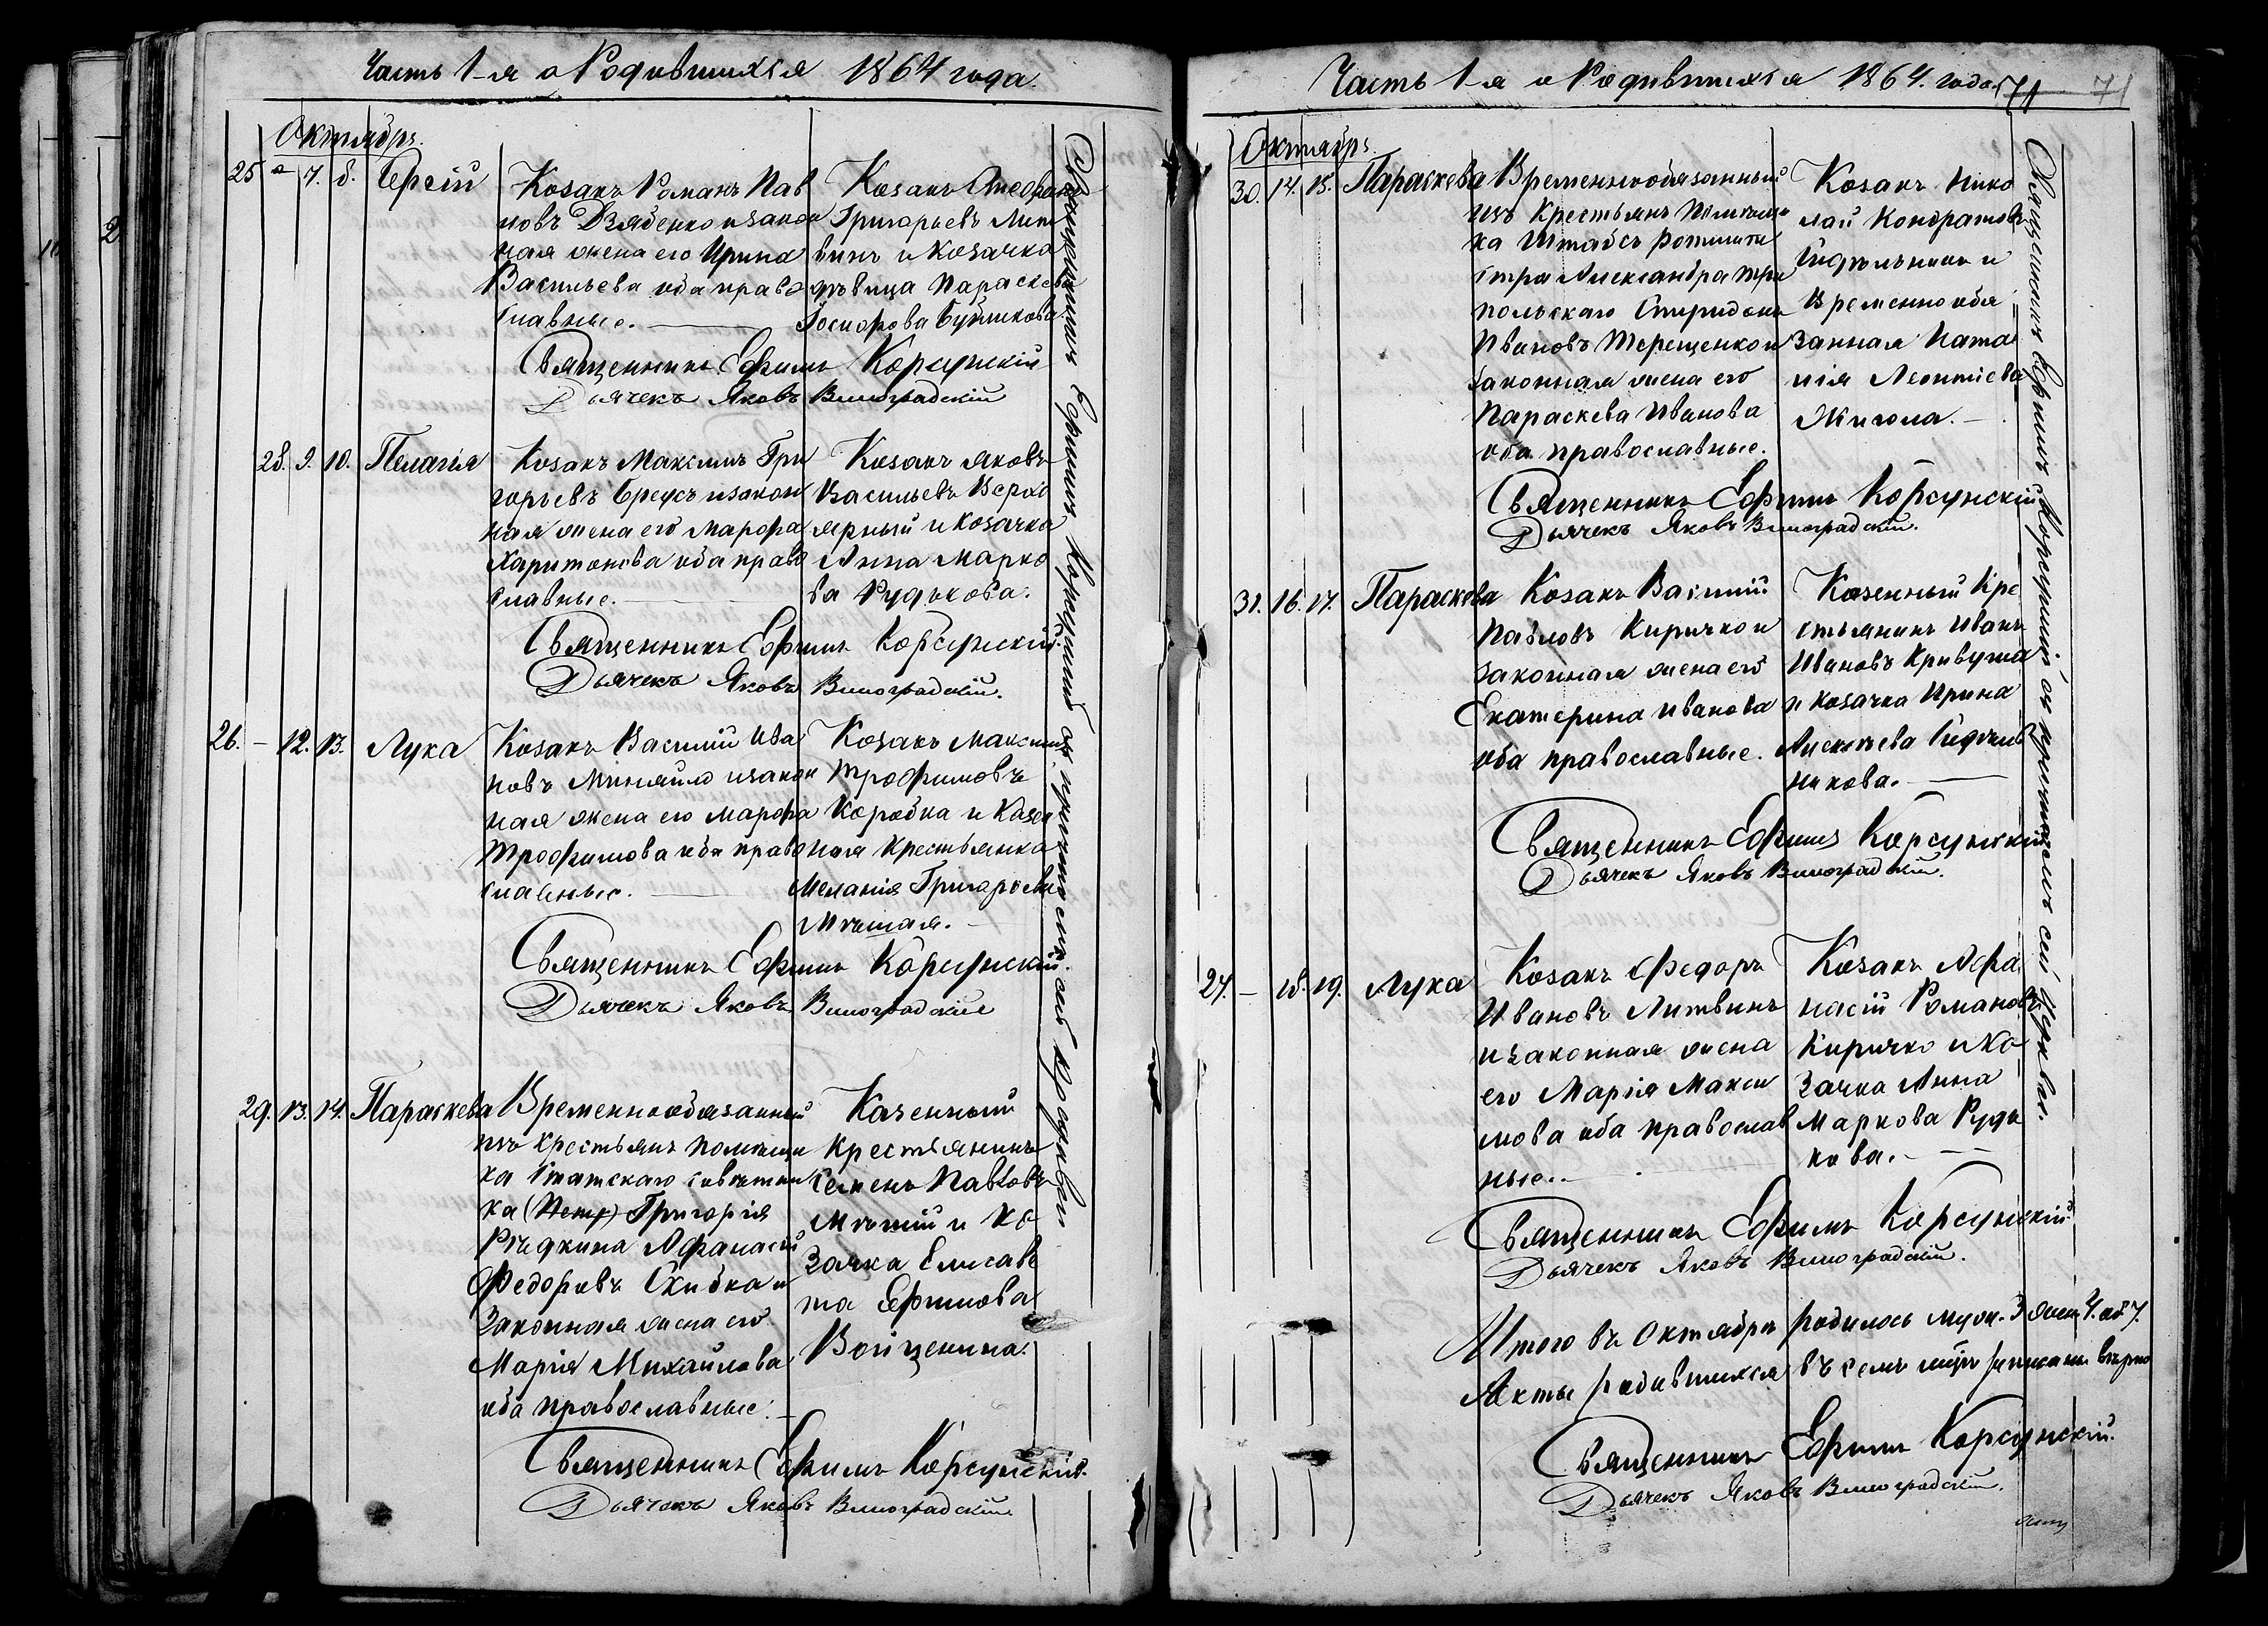 Часть 1-я о Родившихся 1864 года.
Октябрь.
25 - 7. 8. Сергій
Козакъ Романъ Пав
ловъ Дзябенко и закон
ная жена его Ирина
Васильева оба право
славные.
Козакъ
Григорьевъ Лит
винъ и козачка
дѣвица Параскева
Священникъ Ефимъ Корсунскій
Дьячекъ Яковъ Виноградскій
28. 9. 10. Пелагія
Козакъ Максимъ Гри
горьевъ Бреусъ и закон
ная жена его Марфа
Харитонова оба право
славные.
Козакъ Яковъ
Васильевъ
и козачка
Анна Марко
ва Рудькова.
Священникъ Ефимъ Корсунскій.
Дьячекъ Яковъ Виноградскій.
26. - 12. 13. Лука
Козакъ Василій Ива
новъ Миняйло и закон
ная жена его Марфа
Трофимова оба право
славные.
Козакъ Максимъ
Трофимовъ
Коробка и Казен
ная Крестьянка
Меланія Григорьева
Священникъ Ефимъ Корсунскій.
Дьячекъ Яковъ Виноградскій
29. 13. 14. Параскева
Временнообязанный
изъ крестьянъ помѣщи
ка Статскаго совѣтни
ка (Петр) Григорія
Рѣдкина Афанасій
Федоровъ Скибка и
Законная жена его
Марія Михайлова
оба православные.
Казенный
Крестьянинъ
Семенъ Павловъ
и Ко
зачка Елисаве
та Ефимова
Войценина.
Священникъ Ефимъ Корсунскій.
Дьячекъ Яковъ Виноградскій.
Священникъ Ефимъ Корсунскій
Часть 1-я о Родившихся 1864. года
71 71
Октябрь.
30. 14. 15. Параскева
Временнообязанный
изъ Крестьянъ Помѣщи
ка Штабсъ Ротмит
стра Александра Три
польскаго Спиридонъ
Ивановъ Терещенко и
законная жена его
Параскева Иванова
оба православные.
Козакъ Нико
лай Кондратовъ
Сидѣльникъ и
Временно обя
занная Ната
лія Леонтіева
Жигола.
Священникъ Ефимъ Корсунскій
Дьячекъ Яковъ Виноградскій.
31. 16. 17. Параскева
Козакъ Василій
Павловъ Киричко и
законная жена его
Екатерина Иванова
оба православные.
Казенный Кре
стьянинъ Иванъ
Ивановъ Кривуша
и козачка Ирина
Алексѣева Сидѣль
никова.
Священникъ Ефимъ Корсунскій
Дьячекъ Яковъ Виноградскій.
27. - 18. 19. Лука
Козакъ Федоръ
Ивановъ Литвинъ
и законная жена
его Марія Макси
мова оба православ
ные.
Козакъ Афа
насій Романовъ
Киричко и Ко
зачка Анна
Маркова Рудь
кова.
Священникъ Ефимъ Корсунскій
Дьячекъ Яковъ Виноградскій.
Итого въ Октябрѣ родилось муж. 3 жен. 4. об. 7.
Акты родившихся въ семъ м-цѣ записаны вѣрно
Священникъ Ефимъ Корсунскій.
Дьячекъ Яковъ Виноградскій.
Священникъ Ефимъ Корсунскій, съ причтомъ сей церкви.